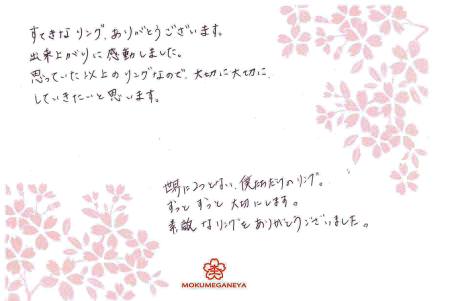 すてきなリング、ありがとうございます。
出来上がりに感動しました。
思っていた以上のリングなので、大切に大切に
していきたいと思います。
世界に2つとない、僕たちだけのリング。
ずっと ずっと 大切にします。
素敵なリングをありがとうございました。
MOKUMEGANEYA